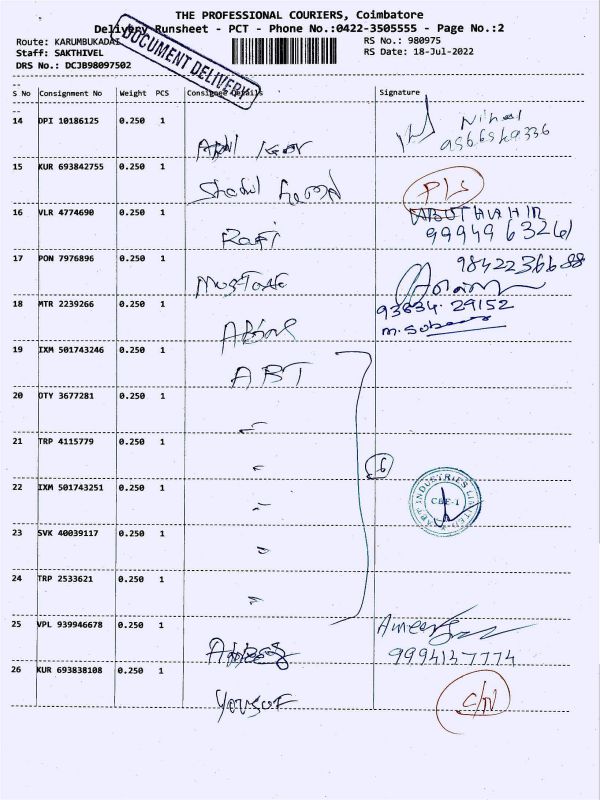 THE PROFESSIONAL COURIERS, Coimbatore
Delivery Runsheet - PCT - Phone No.:0422-3505555 - Page No.:2
Route: KARUMBUKADAI
RS No.: 980975
Staff: SAKTHIVEL
RS Date: 18-Jul-2022
DRS No.: DCJB98097502
DOCUMENT DELIVERY
S No Consignment No Weight PCS Consignee Details Signature
14 DPI 10186125 0.250 1
Nihal
15 KUR 693842755 0.250 1
P/S
16 VLR 4774690 0.250 1 Rafi
ABUTHAHIR
9994963261
17 PON 7976896 0.250 1
9842236688
18 MTR 2239266 0.250 1
93634 29152
19 IXM 501743246 0.250 1 ABT
20 OTY 3677281 0.250 1
21 TRP 4115779 0.250 1
6
22 IXM 501743251 0.250 1
ABT INDUSTRIES LIMITED
CBE-1
23 SVK 40039117 0.250 1
24 TRP 2533621 0.250 1
25 VPL 939946678 0.250 1
Ameer
9994137774
26 KUR 693838108 0.250 1 Yousuf
C/N